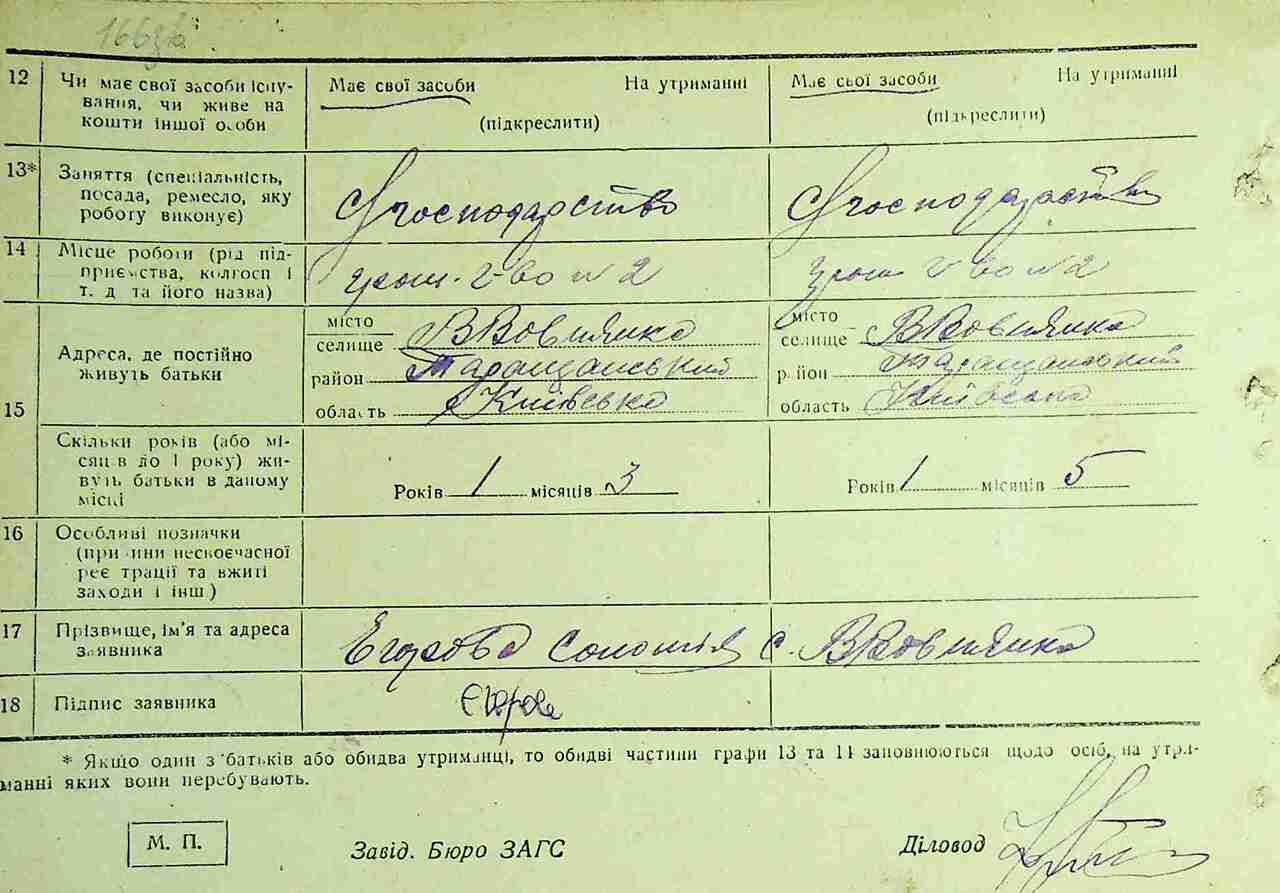 12 Чи має свої засоби існу- Має свої засоби На утриманні Має свої засоби На утриманні
вання, чи живе на
кошти іншої особи (підкреслити) (підкреслити)
13* Заняття (спеціальність,
посада, ремесло, яку господарство господарств
роботу виконує)
14 Місце роботи (рід під-
приємства, колгосп і гром. г-во №2 гром г-во №2
т. д та його назва)
15 Адреса, де постійно
живуть батьки
місто
селище ВВовнянка
район Таращанський
область Київська
місто
селище ВВовнянка
район Таращанський
область Київська
Скільки років (або мі-
сяців до 1 року) жи-
вуть батьки в даному Років 1 місяців 3 Років 1 місяців 5
місці
16 Особливі позначки
(причини несвоєчасної
реєстрації та вжиті
заходи і інш)
17 Прізвище, ім'я та адреса
заявника Егорова Соломія с. ВВовнянка
18 Підпис заявника
* Якщо один з батьків або обидва утриманці, то обидві частини графи 13 та 14 заповнюються щодо осіб, на утри-
манні яких вони перебувають.
М. П. Завід. Бюро ЗАГС Діловод